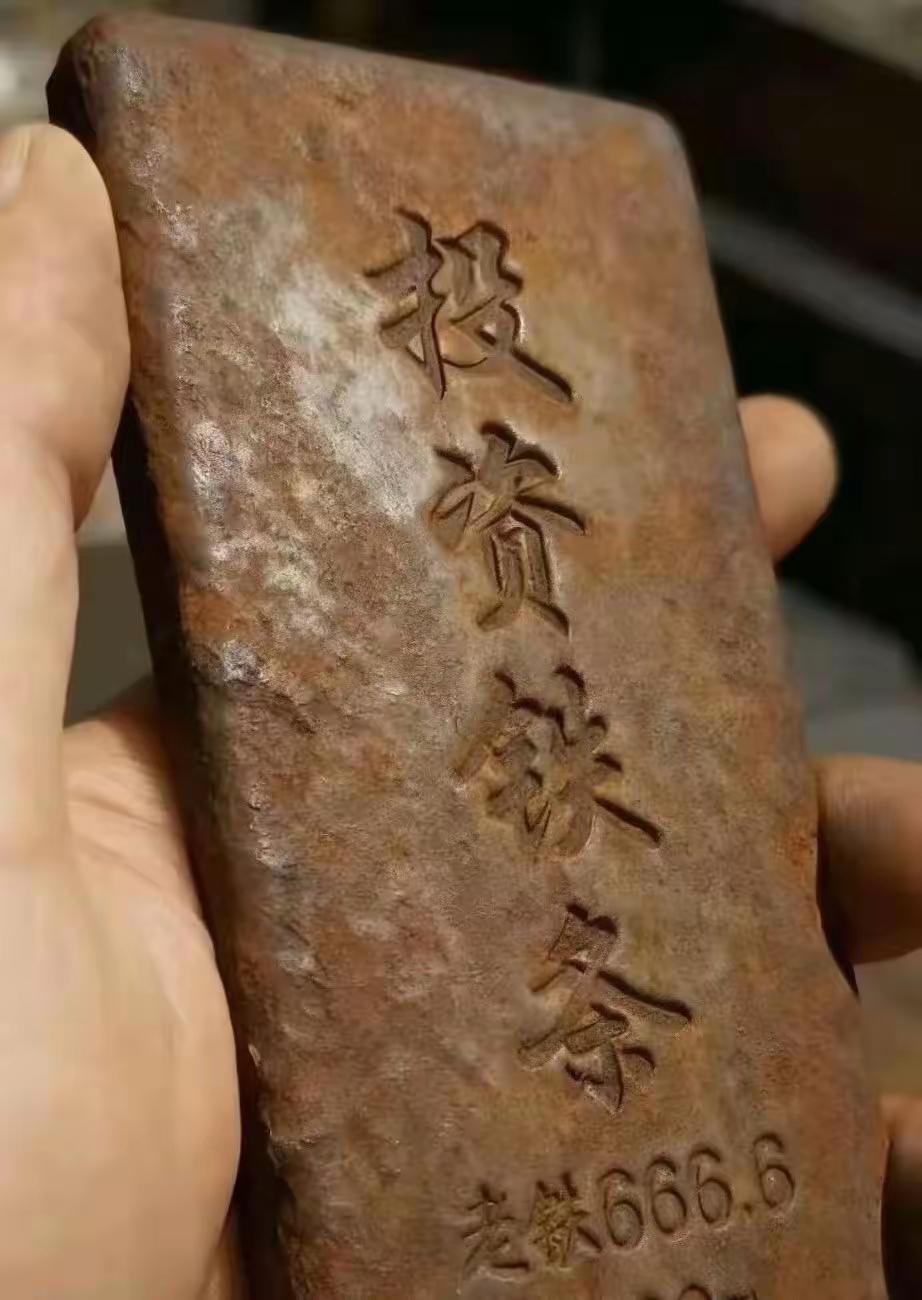 投资铁条
老铁666.6